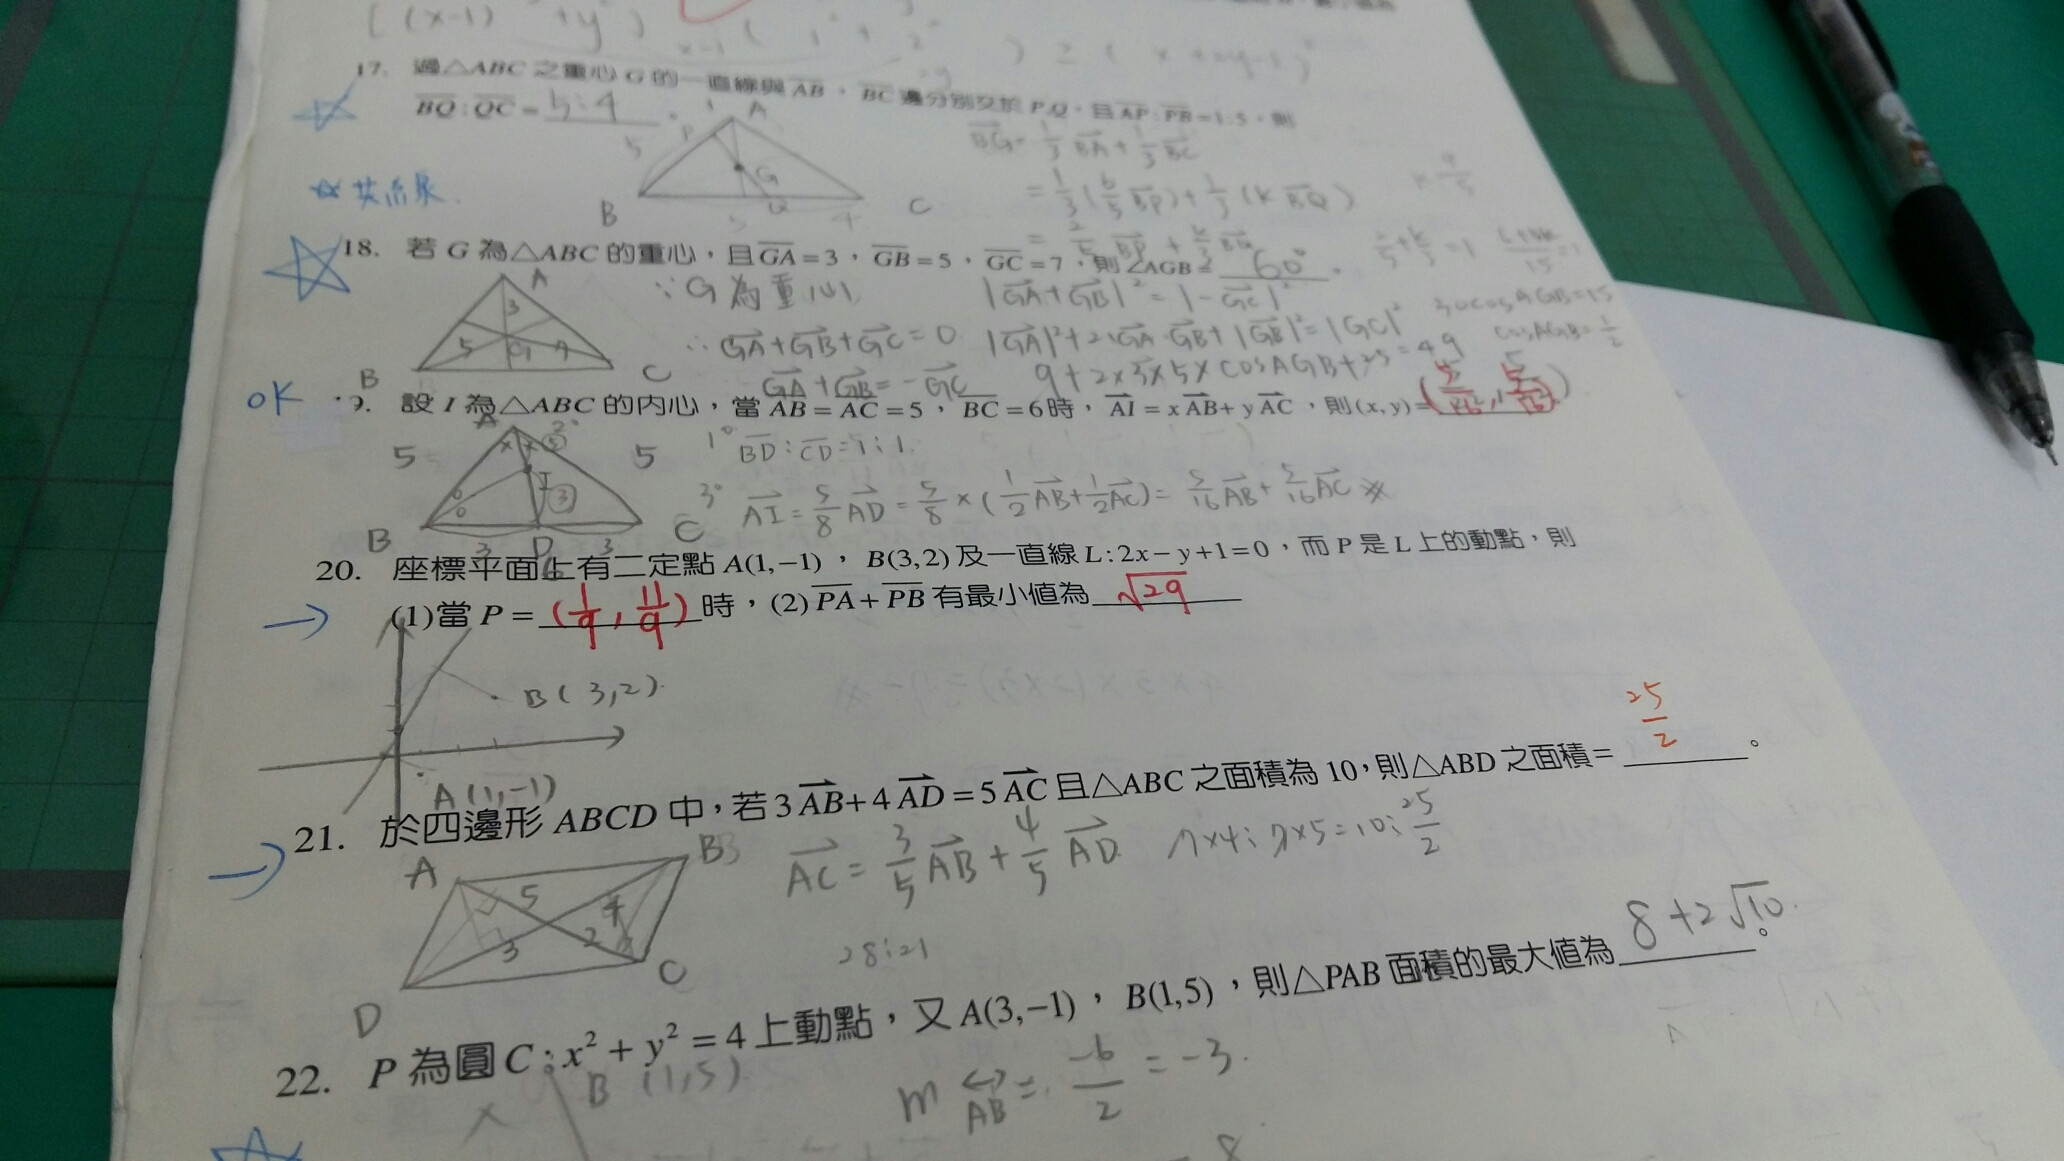 [(x-1) +y )
17. 過△ABC之重心G的一直線與AB，BC邊分別交於P,Q，且AP:PB=1:5，則
BQ:QC= 5:4
BG=1/3BA+1/3BC
=1/3(6/5BP)+1/3(kBQ)
=2/5BP+k/3BQ
2/5+k/3=1
A
P
G
B
C
5
4
18. 若G為△ABC的重心，且GA=3，GB=5，GC=7，則∠AGB= 60°。
∵G為重心
|GA+GB|²=|-GC|²
∴GA+GB+GC=0
|GA|²+2·GA·GB+|GB|²=|GC|²
30cosAGB=15
cosAGB=1/2
GA+GB=-GC
9+2×3×5×cosAGB+25=49
A
3
5
G
7
B
C
OK
9. 設I為△ABC的內心，當AB=AC=5，BC=6時，AI=xAB+yAC，則(x,y)=(5/16,5/16)
1° BD:CD=1:1
3° AI=5/8AD=5/8×(1/2AB+1/2AC)=5/16AB+5/16AC ※
A
2°
5
5
5
I
3
B
3
D
3
C
6
20. 座標平面上有二定點A(1,−1)，B(3,2)及一直線L:2x−y+1=0，而P是L上的動點，則
(1)當P=(1/9,11/9)時，(2)PA+PB有最小值為 √29
B(3,2)
A(1,-1)
21. 於四邊形ABCD中，若3AB+4AD=5AC且△ABC之面積為10，則△ABD之面積= 25/2。
AC=3/5AB+4/5AD
7×4:7×5=10:25/2
28:21
A
B
5
4
3
2
D
C
22. P為圓C:x²+y²=4上動點，又A(3,−1)，B(1,5)，則△PAB面積的最大值為 8+2√10。
B (1,5)
m AB = -6/2 = -3.
8